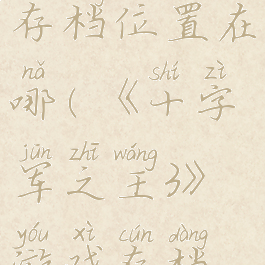 存档位置在
nǎ shí zì
哪(《十字
jūn zhī wáng
军之王3》
yóu xì cún dàng
游戏存档